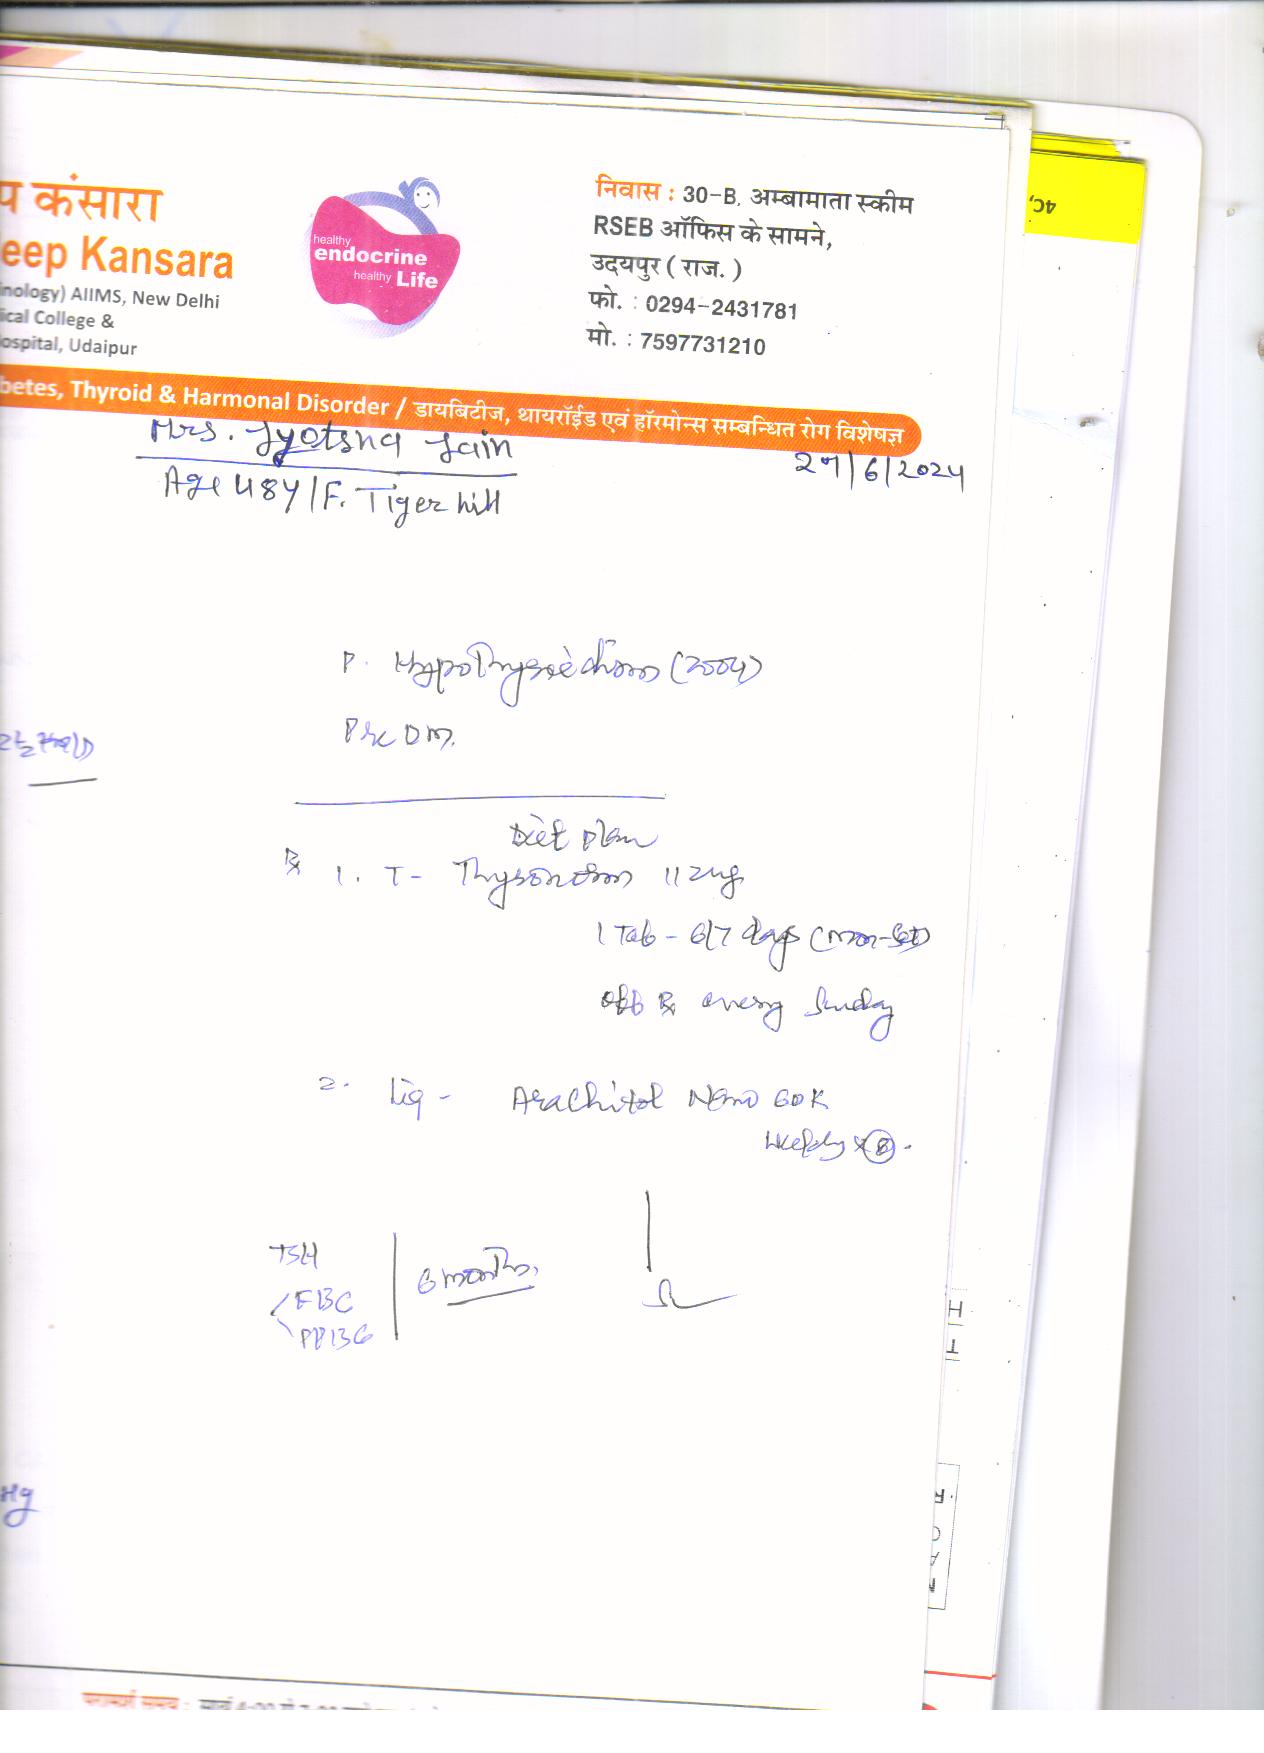 प कंसारा
eep Kansara
inology) AIIMS, New Delhi
ical College &
Hospital, Udaipur
healthy
endocrine
healthy Life
निवास : 30-B, अम्बामाता स्कीम
RSEB ऑफिस के सामने,
उदयपुर ( राज. )
फो. : 0294-2431781
मो. : 7597731210
betes, Thyroid & Harmonal Disorder / डायबिटीज, थायरॉईड एवं हॉरमोन्स सम्बन्धित रोग विशेषज्ञ
Mrs. Jyotsna Jain
/6/2024
Age 48Y/F. Tiger hill
P. Hypothyroidism (2004)
Pre DM.
Diet plan
Rx 1. T- Thyronorm 112ug
1 Tab - 6/7 days (Mon-Sat)
off Rx every Sunday
2. Liq - Arachitol Nano 60K
Weekly x 8.
TSH
FBG
PPBG
6 months.
Hg
4C,
H
T
परामर्श समय :